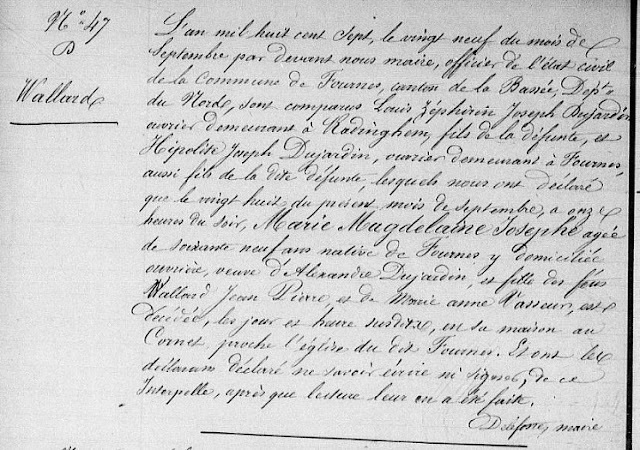 N° 47
D
Wallard
L'an mil huit cent sept, le vingt neuf du mois de
Septembre par devant nous maire, officier de l'état civil
de la Commune de Fournes, canton de la Bassée, Dept
du Nord, sont comparus Louis Zéphirin Joseph Dujardin
ouvrier demeurant à Radinghem, fils de la défunte, et
Hipolite Joseph Dujardin, ouvrier demeurant à Fournes,
aussi fils de la dite défunte, lesquels nous ont déclaré
que le vingt huit du présent mois de Septembre, à onze
heures du soir, Marie Magdelaine Josephe agée
de soixante neuf ans native de Fournes y domiciliée
ouvrière, veuve d'Alexandre Dujardin, et fille des feus
Wallard Jean Pierre, et de Marie anne Vasseur, est
décédée, les jour et heure susdits, en sa maison au
Cornet proche l'église du dit Fournes. Et ont les
déclarans déclaré ne savoir écrire ni signer, de ce
Interpellé, après que lecture leur en a été faite.
maire